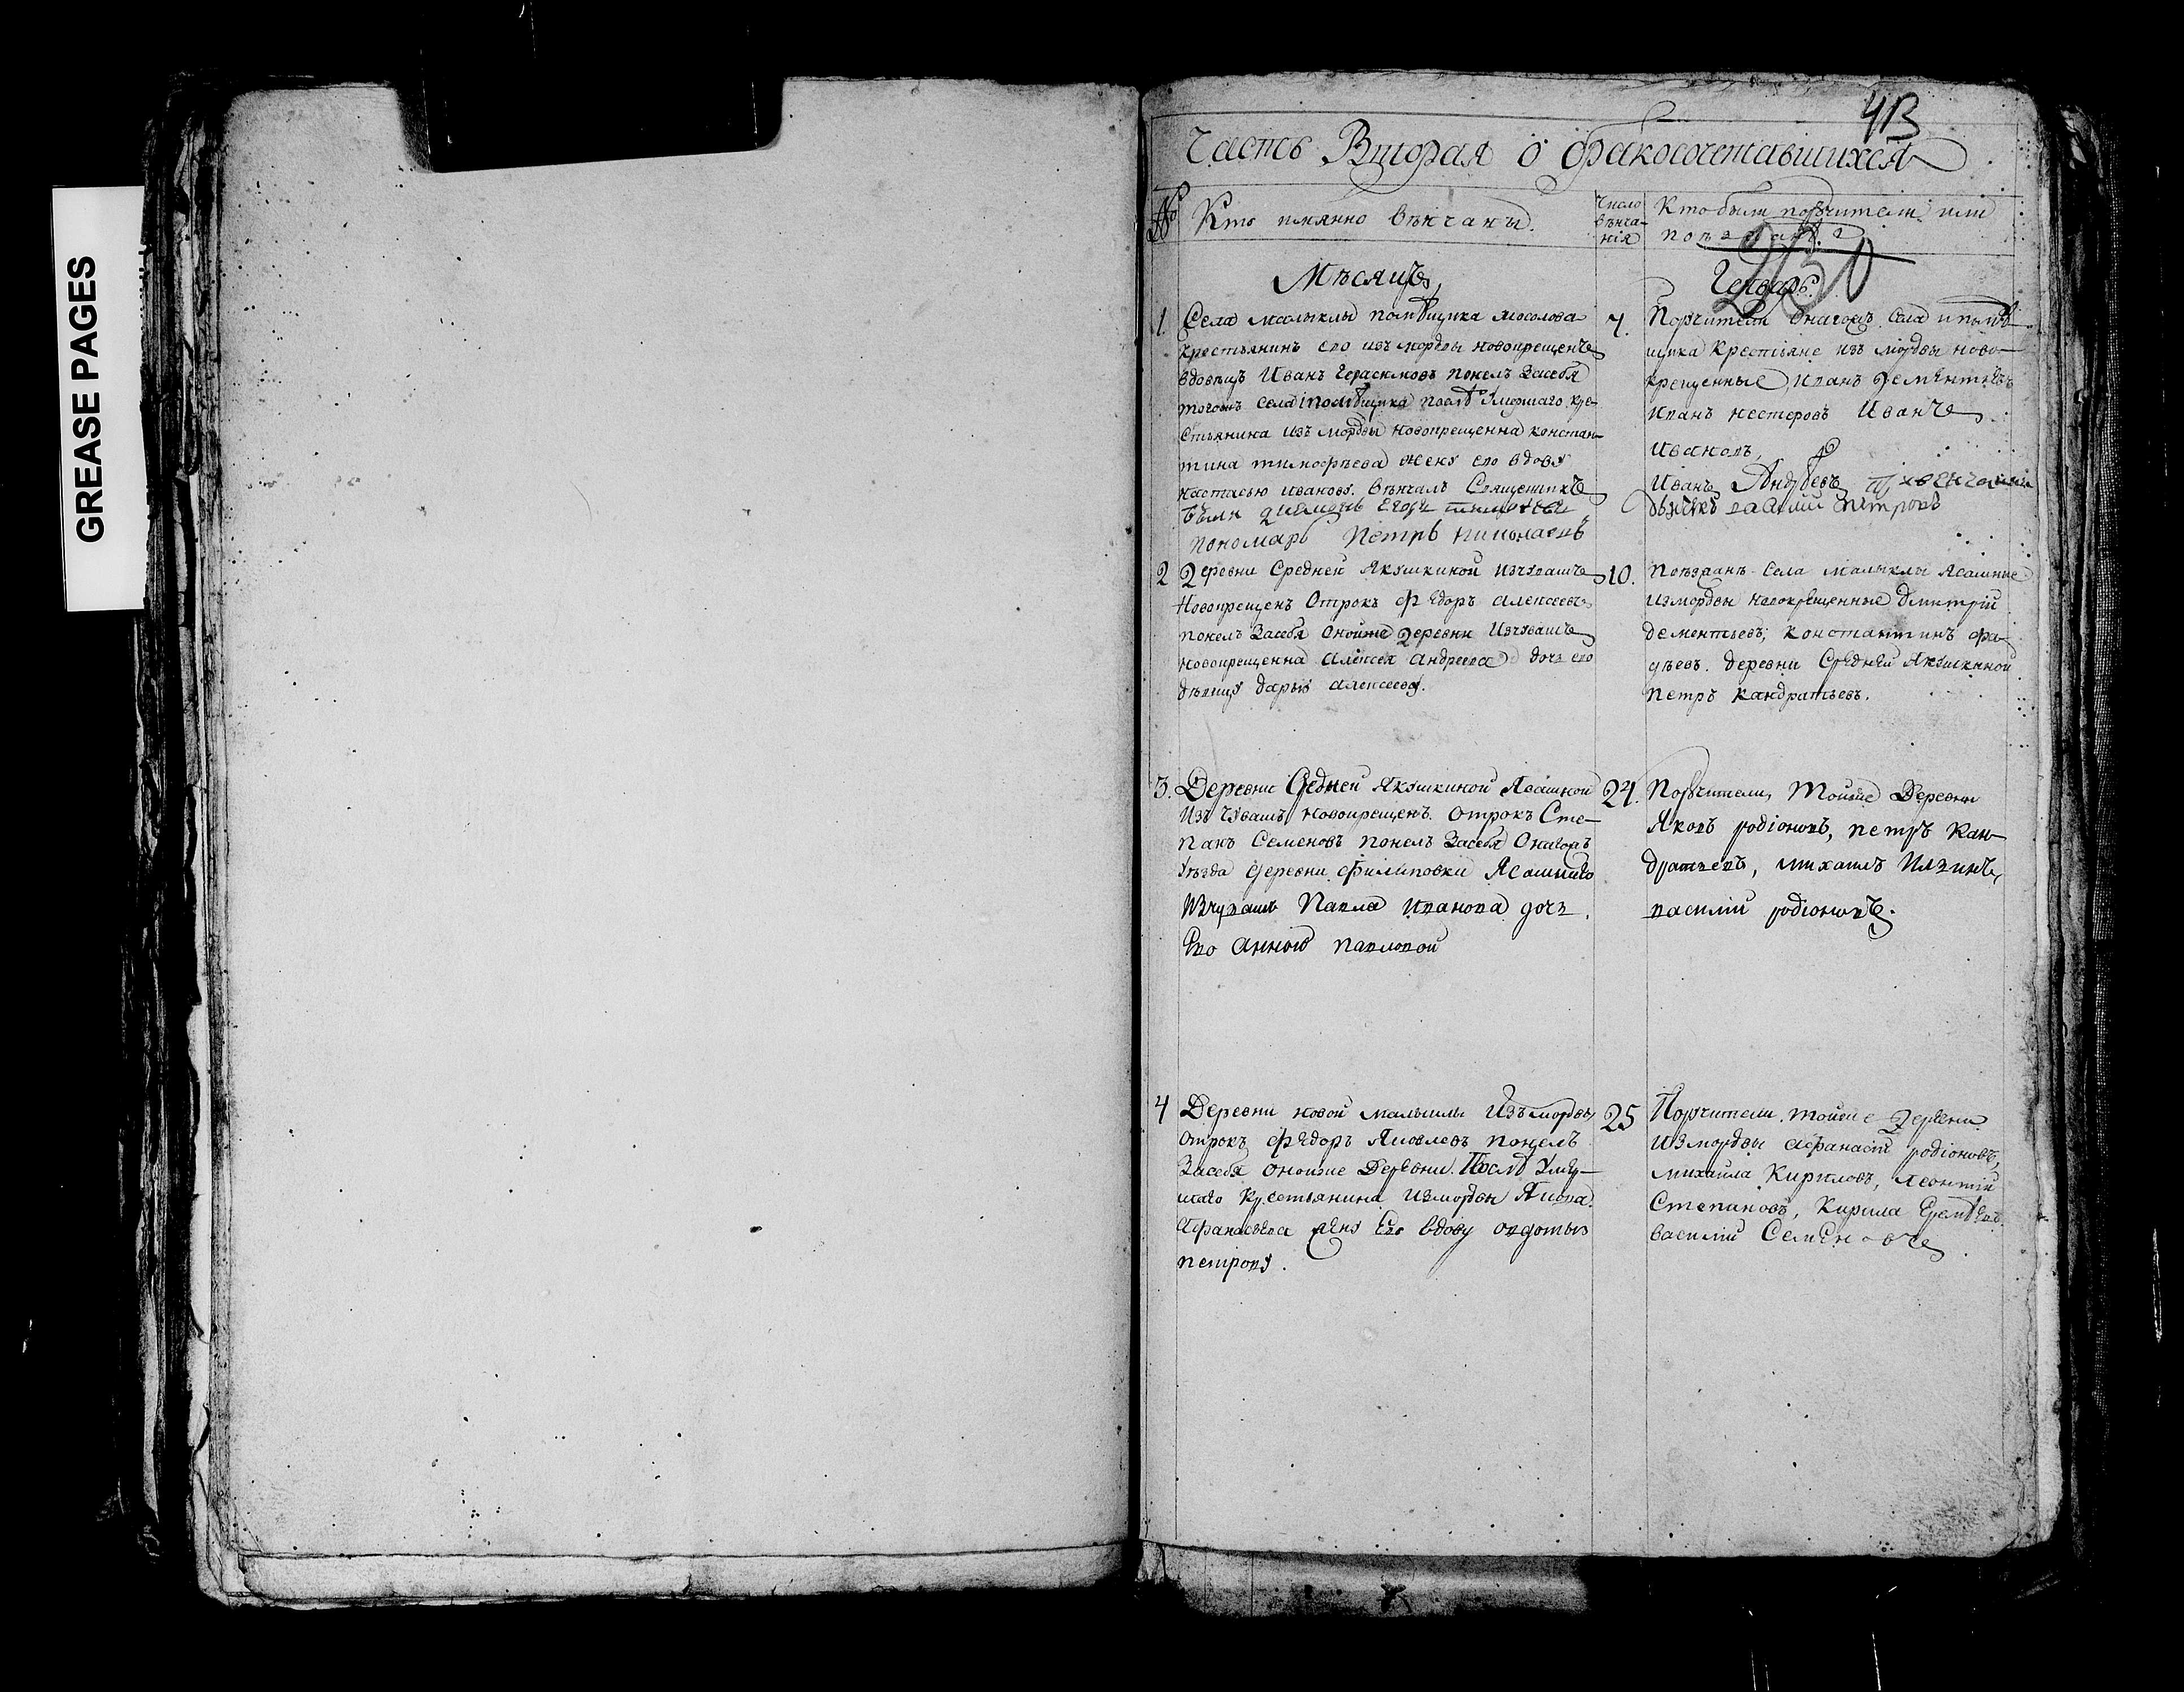 GREASE PAGES
413
Часть Вторая о бракосочетавшихся
№ Кто имянно вѣнчаны.
Число
вѣнча-
нія
Кто были поручители или
поѣзжаня
250
Мѣсяцъ
Генварь
1. Села малыклы помѣщика мосолова
крестьянинъ его изъ мордвы новокрещенъ
вдовецъ Иванъ Герасимовъ понелъ засебя
тогожъ села помѣщика послѣ умершаго кре-
стьянина изъ мордвы новокрещенна констан-
тина тимофѣева жену его вдову
настасью иванову. вѣнчалъ Священникъ
пономарь Петръ николаевъ
7. Поручители онагожъ села и помѣ-
щика крестьяне изъ мордвы ново-
крещенные, иванъ дементьевъ
иванъ нестеровъ Иванъ
ивановъ,
Иванъ Андреевъ при венчании
дьячекъ василий петровъ
2 Деревни Средней Якушкиной изчувашъ
Новокрещенъ Отрокъ Федоръ алексеевъ
понелъ засебя оной же деревни Изчувашъ
новокрещенна алексея андреева дочь его
дѣвицу дарью алексееву.
10. Поезжанѣ Села малыклы Ясашные
измордвы новокрещенные дмитрій
дементьевъ, константинъ фа-
дѣевъ. деревни Средней Якушкиной
петръ кандратьевъ.
3. Деревни Средней Якушкиной Ясашной
Изъ Чувашъ Новокрещенъ. отрокъ Сте-
панъ Семеновъ понелъ засебя Онагожъ
уѣзда деревни Филиповки Ясашнаго
Изчувашъ Павла иванова дочь
Его анною павловой
24. Поручители, Тойже Деревни
Яковъ родіоновъ, петръ Кан-
дратьевъ, михаилъ Ильинъ,
василий родіоновъ.
4 Деревни новой малыклы Изъ мордвы
отрокъ Федоръ Яковлевъ понелъ
Засебя оной же Деревни. Послѣ умер-
шаго Крестьянина измордвы Якова
Афанасьева жену Его вдову авдотью
петрову.
25 Поручители. тойже Деревни
Измордвы афанасій родіоновъ,
михайла Кириловъ, леонтій
Степановъ, Кирила Еремѣевъ
василій Семеновъ